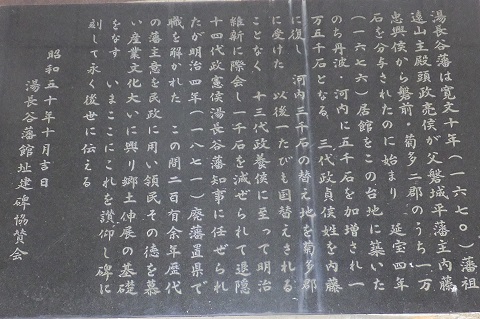 湯長谷藩は寛文十年(一六七〇)藩祖
遠山主殿頭政亮侯が父磐城平藩主内藤
忠興侯から磐前・菊多二郡のうち一万
石を分与されたのに始まり 延宝四年
(一六七六)居館をこの台地に築いた
のち丹波・河内に五千石を加増され一
万五千石となる 三代政貞侯姓を内藤
に復し 河内三千石の替え地を菊多郡
に受けた 以後一たびも国替えされる
ことなく 十三代政養侯に至って明治
維新に際会し一千石を減ぜられて退隠
十四代政憲侯湯長谷藩知事に任ぜられ
たが明治四年(一八七一)廃藩置県で
職を解かれた この間二百有余年歴代
の藩主意を民政に用い領民その徳を慕
い産業文化大いに興り郷土伸展の基礎
をなす いまここにこれを讃仰し碑に
刻して永く後世に伝える
昭和五十年十月吉日
湯長谷藩館址建碑協賛会